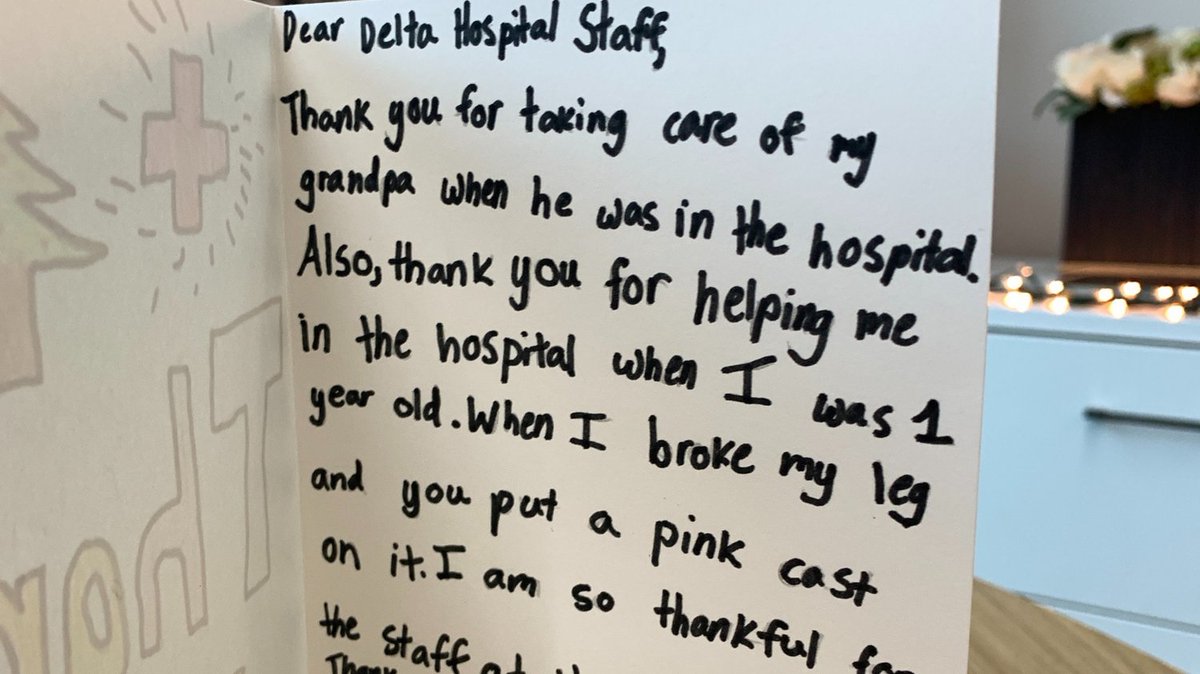 Dear Delta Hospital Staff,
Thank you for taking care of my
grandpa when he was in the hospital.
Also, thank you for helping me
in the hospital when I was 1
year old. When I broke my leg
and you put a pink cast
on it. I am so thankful for
the staff at